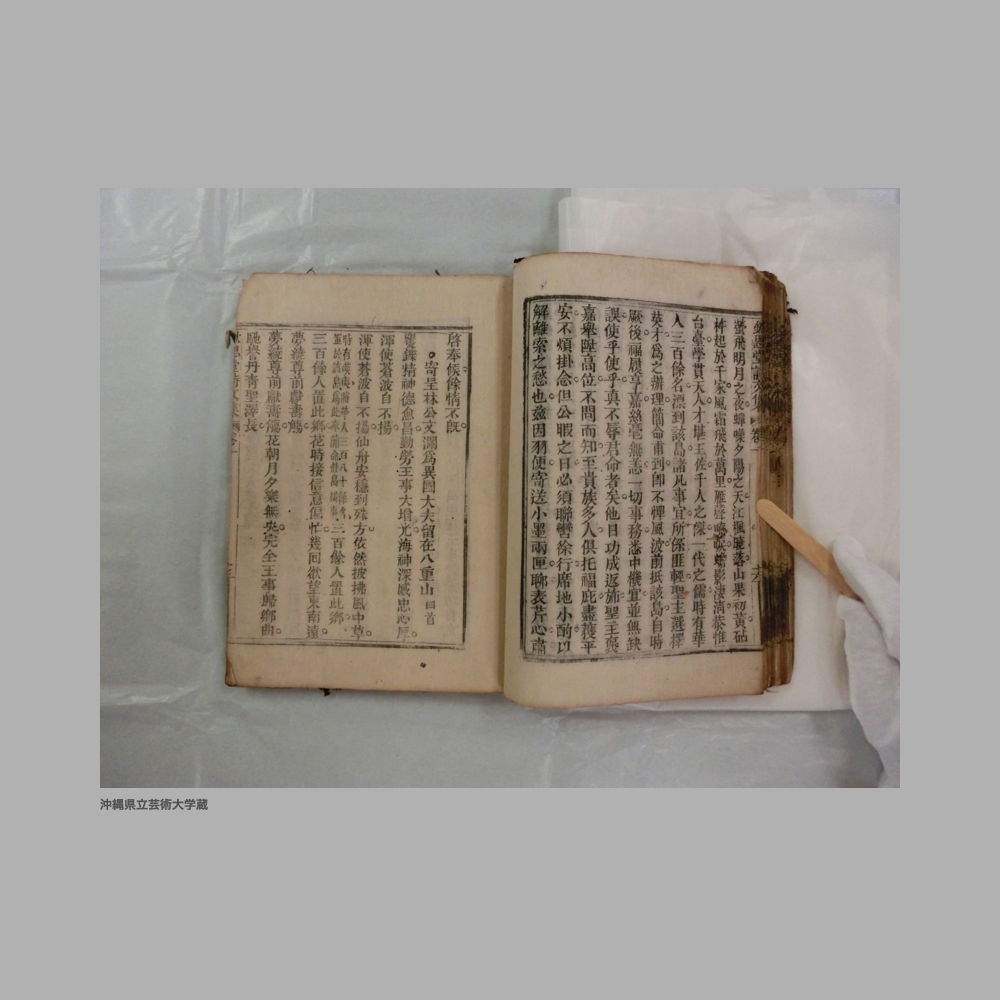 螢飛明月之夜蟬噪夕陽之天江楓曉落山果初黃砧
杵起於千家風霜飛於萬里雁聲嘹唳蟾影淒清恭惟
台臺學貫天人才堪王佐千人之傑一代之儒時有華
人三百餘名漂到該島諸凡事宜所係匪輕聖主選擇
英才爲之辦理簡命甫到卽不憚風波前抵該島自時
厥後福履亨嘉絲毫無恙一切事務悉中機宜並無缺
誤使乎使乎眞不辱君命者矣他日功成返旆聖主襃
嘉舉陞高位不問而知至貴族多人俱托福庇盡獲平
安不煩掛念但公暇之日必須聯轡徐行席地小酌以
解離索之愁也茲因羽便寄送小墨兩匣聊表芹心肅
啓奉候餘情不旣
寄呈林公文瀾爲異國大夫留在八重山 四首
矍鑠精神德愈昌勤勞王事大埴光海神深感忠心厚
渾使蒼波自不揚
渾使蒼波自不揚仙舟安穩到殊方依然披拂風中草
三百餘人置此鄉
三百餘人置此鄉花時接信意偏忙幾回欲望東南遠
夢繞尊前獻壽觴
夢繞尊前獻壽觴花朝月夕樂無央完全王事歸鄉曲
馳譽丹靑聖澤長
沖縄県立芸術大学蔵